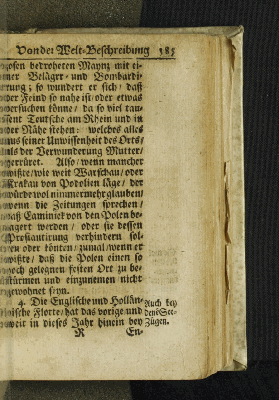 Von der Welt-Beschreibung 185
zosen bedroheten Maynz mit ei-
ner Belåger- und Bombardi-
rung; so wundert er sich / daß
der Feind so nahe ist / oder etwas
versuchen könne / da so viel tau-
sent Teutsche am Rhein und in
der Nähe stehen: welches alles
aus seiner Unwissenheit des Orts /
als der Verwunderung Mutter /
herrüret. Also / wenn mancher
wißte / wie weit Warschau / oder
Krakau von Podolien läge / der
würde wol nimmermehr glauben /
wenn die Zeitungen sprechen /
daß Caminiek von den Polen be-
lagert werden / oder sie dessen
Profiantirung verhindern sol-
len oder könten / zumal / wenn er
wißte / daß die Polen einen so
hoch gelegnen festen Ort zu be-
stürmen und einzunemen nicht
gewohnet seyn.
4. Die Englische und Hollän-
dische Flotte / hat das vorige und
weit in dieses Jahr hinein bey
Auch bey
denē See-
Zügen.
R En-